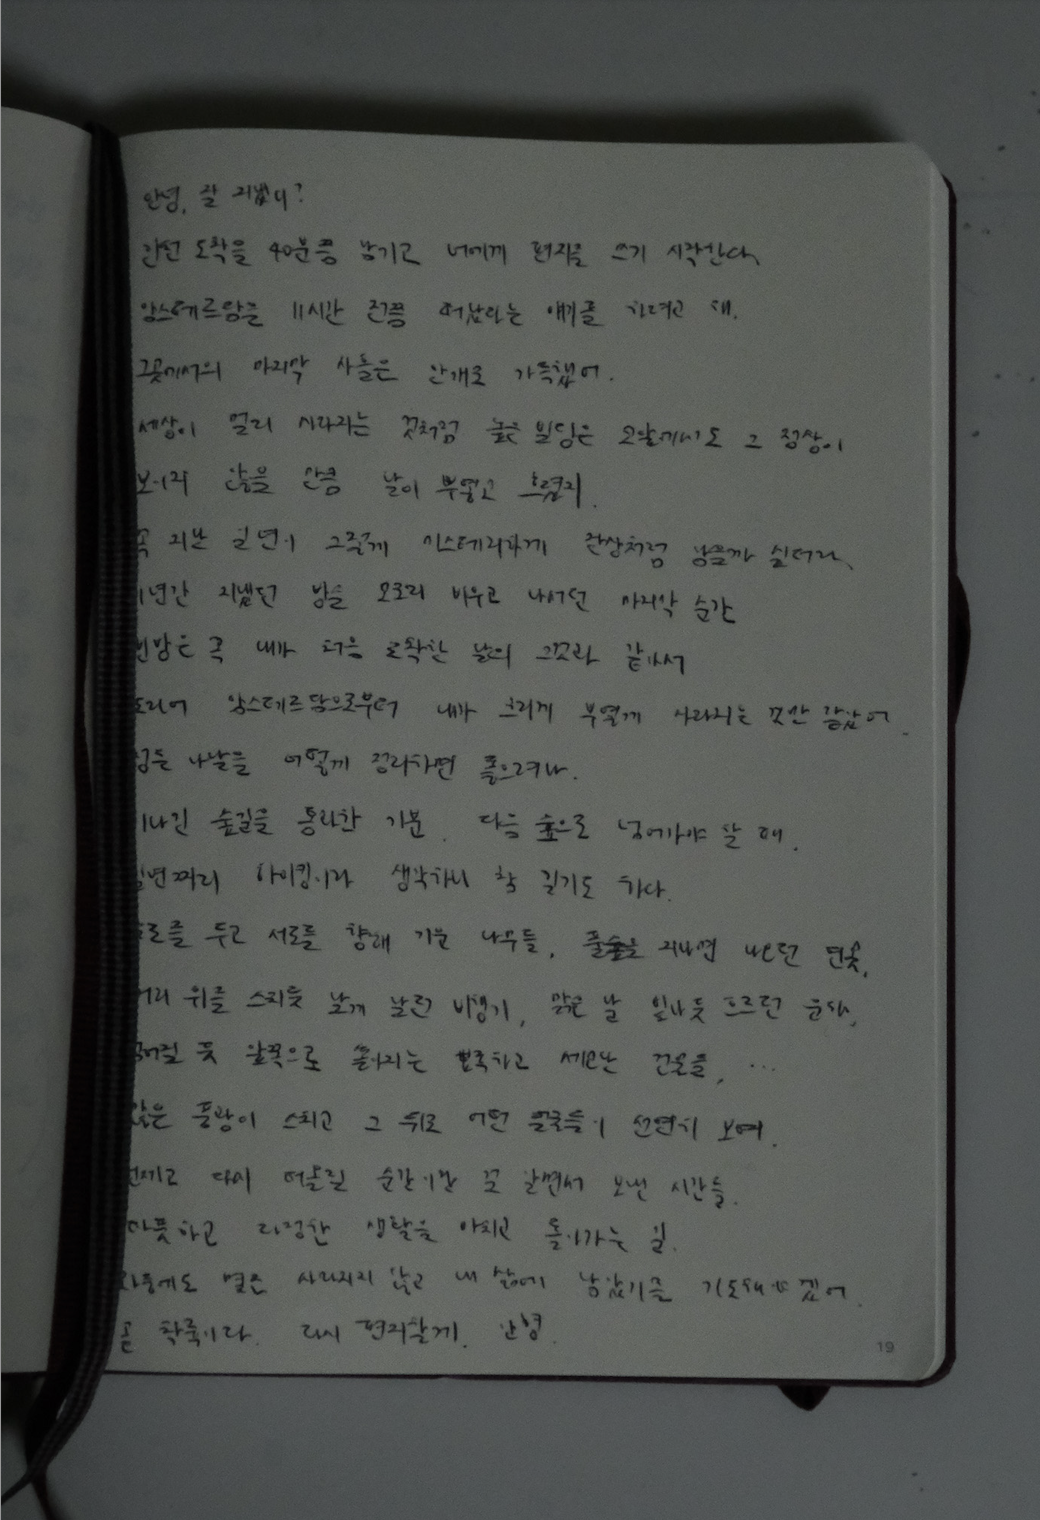 안녕, 잘 지냈니?
인천 도착을 40분쯤 남기고 너에게 편지를 쓰기 시작한다.
암스테르담을 11시간 전쯤 떠났다는 얘기를 하려고 해.
그곳에서의 마지막 사흘은 안개로 가득했어.
세상이 멀리 사라지는 것처럼 높은 빌딩은 그 정상이
보이지 않을 만큼 날이 부옇고 흐렸지.
꼭 지난 일년이 그렇게 미스테리하게 환상처럼 남을까 싶더라.
1년간 지냈던 방을 모조리 비우고 나서던 마지막 순간
빈방은 꼭 내가 처음 도착한 날의 그것과 같아서
도리어 암스테르담으로부터 내가 흐리게 부옇게 사라지는 것만 같았어.
힘든 나날을 어떻게 정리하면 좋으려나.
기나긴 숲길을 통과한 기분. 다음 숲으로 넘어가야 할 때.
일년짜리 하이킹이라 생각하니 참 길기도 하다.
두고 서로를 향해 기운 나무들, 풀숲을 지나면 나오던 연못,
머리 위를 스치듯 낮게 날던 비행기, 맑은 날 빛나듯 흐르던 운하,
듯 앞쪽으로 쏟아지는 뾰족하고 세모난 건물들, ...
많은 풍광이 스치고 그 뒤로 어떤 얼굴들이 선연히 보여.
언제고 다시 떠올릴 순간이란 걸 알면서 보낸 시간들.
따뜻하고 다정한 생활을 마치고 돌아가는 일.
와중에도 몇은 사라지지 않고 내 삶에 남았기를 기도해야겠어.
곧 착륙이다. 다시 편지할게. 안녕.
19